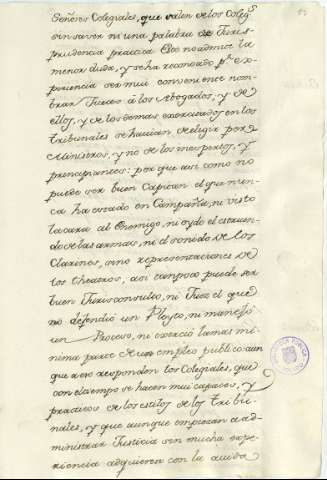 Señores Colegiales, que salen de los Coleg.s
sin saver ni una palabra de Juris-
prudencia practica. Esto no admite la
menor duda, y se ha reconocido p.r ex-
periencia ser mui conveniente nom-
brar Jueces à los Abogados, y de
ellos, y de los demas exercitados en los
tribunales se havian de elegir por
Ministros, y no de los inexpertos, y
principiantes: por que asi como no
puede ser buen Capitan el que nun-
ca ha estado en Campaña, ni visto
la cara al Enemigo, ni oydo el estruen-
do de las armas, ni el sonido de los
Clarines, sino representaciones de
los theatros, asi tampoco puede ser
buen Jurisconsulto, ni Juez el que
no defendió un Pleyto, ni manejó
un Proceso, ni exerció la mas mi-
nima parte de un empleo publico: aun
que à eso responden los Colegiales, que
con el tiempo se hacen mui capaces, y
practicos de los estilos de los tribu-
nales, y que aunque empiezan à ad-
ministrar Justicia sin mucha expe-
riencia adquieren con la ayuda